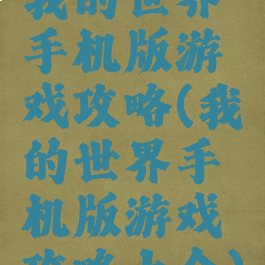 我的世界
手机版游
戏攻略(我
的世界手
机版游戏
攻略大全)